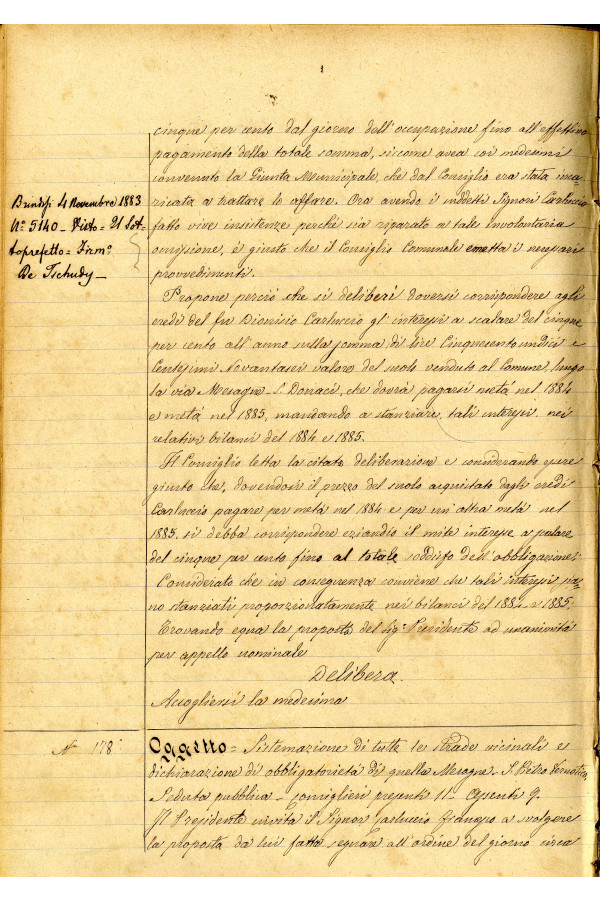 cinque per cento dal giorno dell'occupazione fino all'effettivo
pagamento della totale somma, siccome avea coi medesimi
convenuto la Giunta Municipale, che dal Consiglio era stata inca-
ricata a trattare lo affare. Ora avendo i suddetti Signori Carluccio
fatto vive insistenze perchè sia riparato a tale involontaria
omissione, è giusto che il Consiglio Comunale emetta i necessari
provvedimenti.
Brindisi 4 Novembre 1883
N.o 5140 = Visto = Il Sot-
toprefetto = Firm.o
De Tschudy
Propone perciò che si deliberi doversi corrispondere agli
eredi del fu Dionisio Carluccio gl'interessi a scalare del cinque
per cento all'anno sulla somma di lire Cinquecento undici e
Centesimi Novantasei valore del suolo venduto al Comune, lungo
la via Mesagne S. Donaci, che dovrà pagarsi metà nel 1884
e metà nel 1885, mandando a stanziare tali interessi nei
relativi bilanci del 1884 e 1885.
Il Consiglio letta la citata deliberazione e considerando essere
giusto che, dovendosi il prezzo del suolo acquistato dagli eredi
Carluccio pagare per metà nel 1884 e per un'altra metà nel
1885, si debba corrispondere eziandio il mite interesse a scalare
del cinque per cento fino al totale soddisfo dell'obbligazione;
Considerato che in conseguenza conviene che tali interessi sia-
no stanziati proporzionatamente nei bilanci del 1884 e 1885;
Trovando equa la proposta del Sig.r Presidente ad unanimità
per appello nominale
Delibera
Accogliersi la medesima
N.o 178
Oggetto = Sistemazione di tutte le strade vicinali e
dichiarazione di obbligatorietà di quella Mesagne - S. Pietro Vernotico
Seduta pubblica - Consiglieri presenti 11 - Assenti 9.
Il Presidente invita il Signor Carluccio a svolgere
la proposta da lui fatta segnare all'ordine del giorno circa